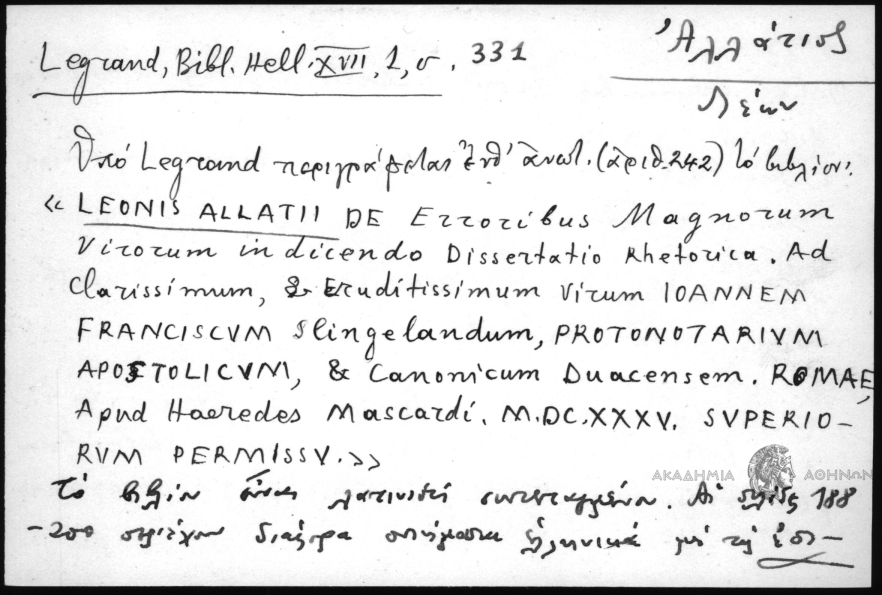 Legrand, Bibl. Hell. XVII, 1, σ. 331
Ἀλλάτιος
Λέων
Ὑπό Legrand περιγράφεται ἔνθ' ἀνωτ. (ἀριθ. 242) τό βιβλίον:
« LEONIS ALLATII DE Erroribus Magnorum
Virorum in dicendo Dissertatio Rhetorica. Ad
Clarissimum, & Eruditissimum Virum IOANNEM
FRANCISCVM Slingelandum, PROTONOTARIVM
APOSTOLICVM, & Canonicum Duacensem. ROMAE,
Apud Haeredes Mascardi. M.DC.XXXV. SVPERIO-
RVM PERMISSV.»
Τό βιβλίον εἶναι λατινιστί συντεταγμένον. Αἱ σελίδες 188
-200 περιέχουν διάφορα ποιήματα ἑλληνικά μέ τήν ἐπι-
ΑΚΑΔΗΜΙΑ ΑΘΗΝΩΝ